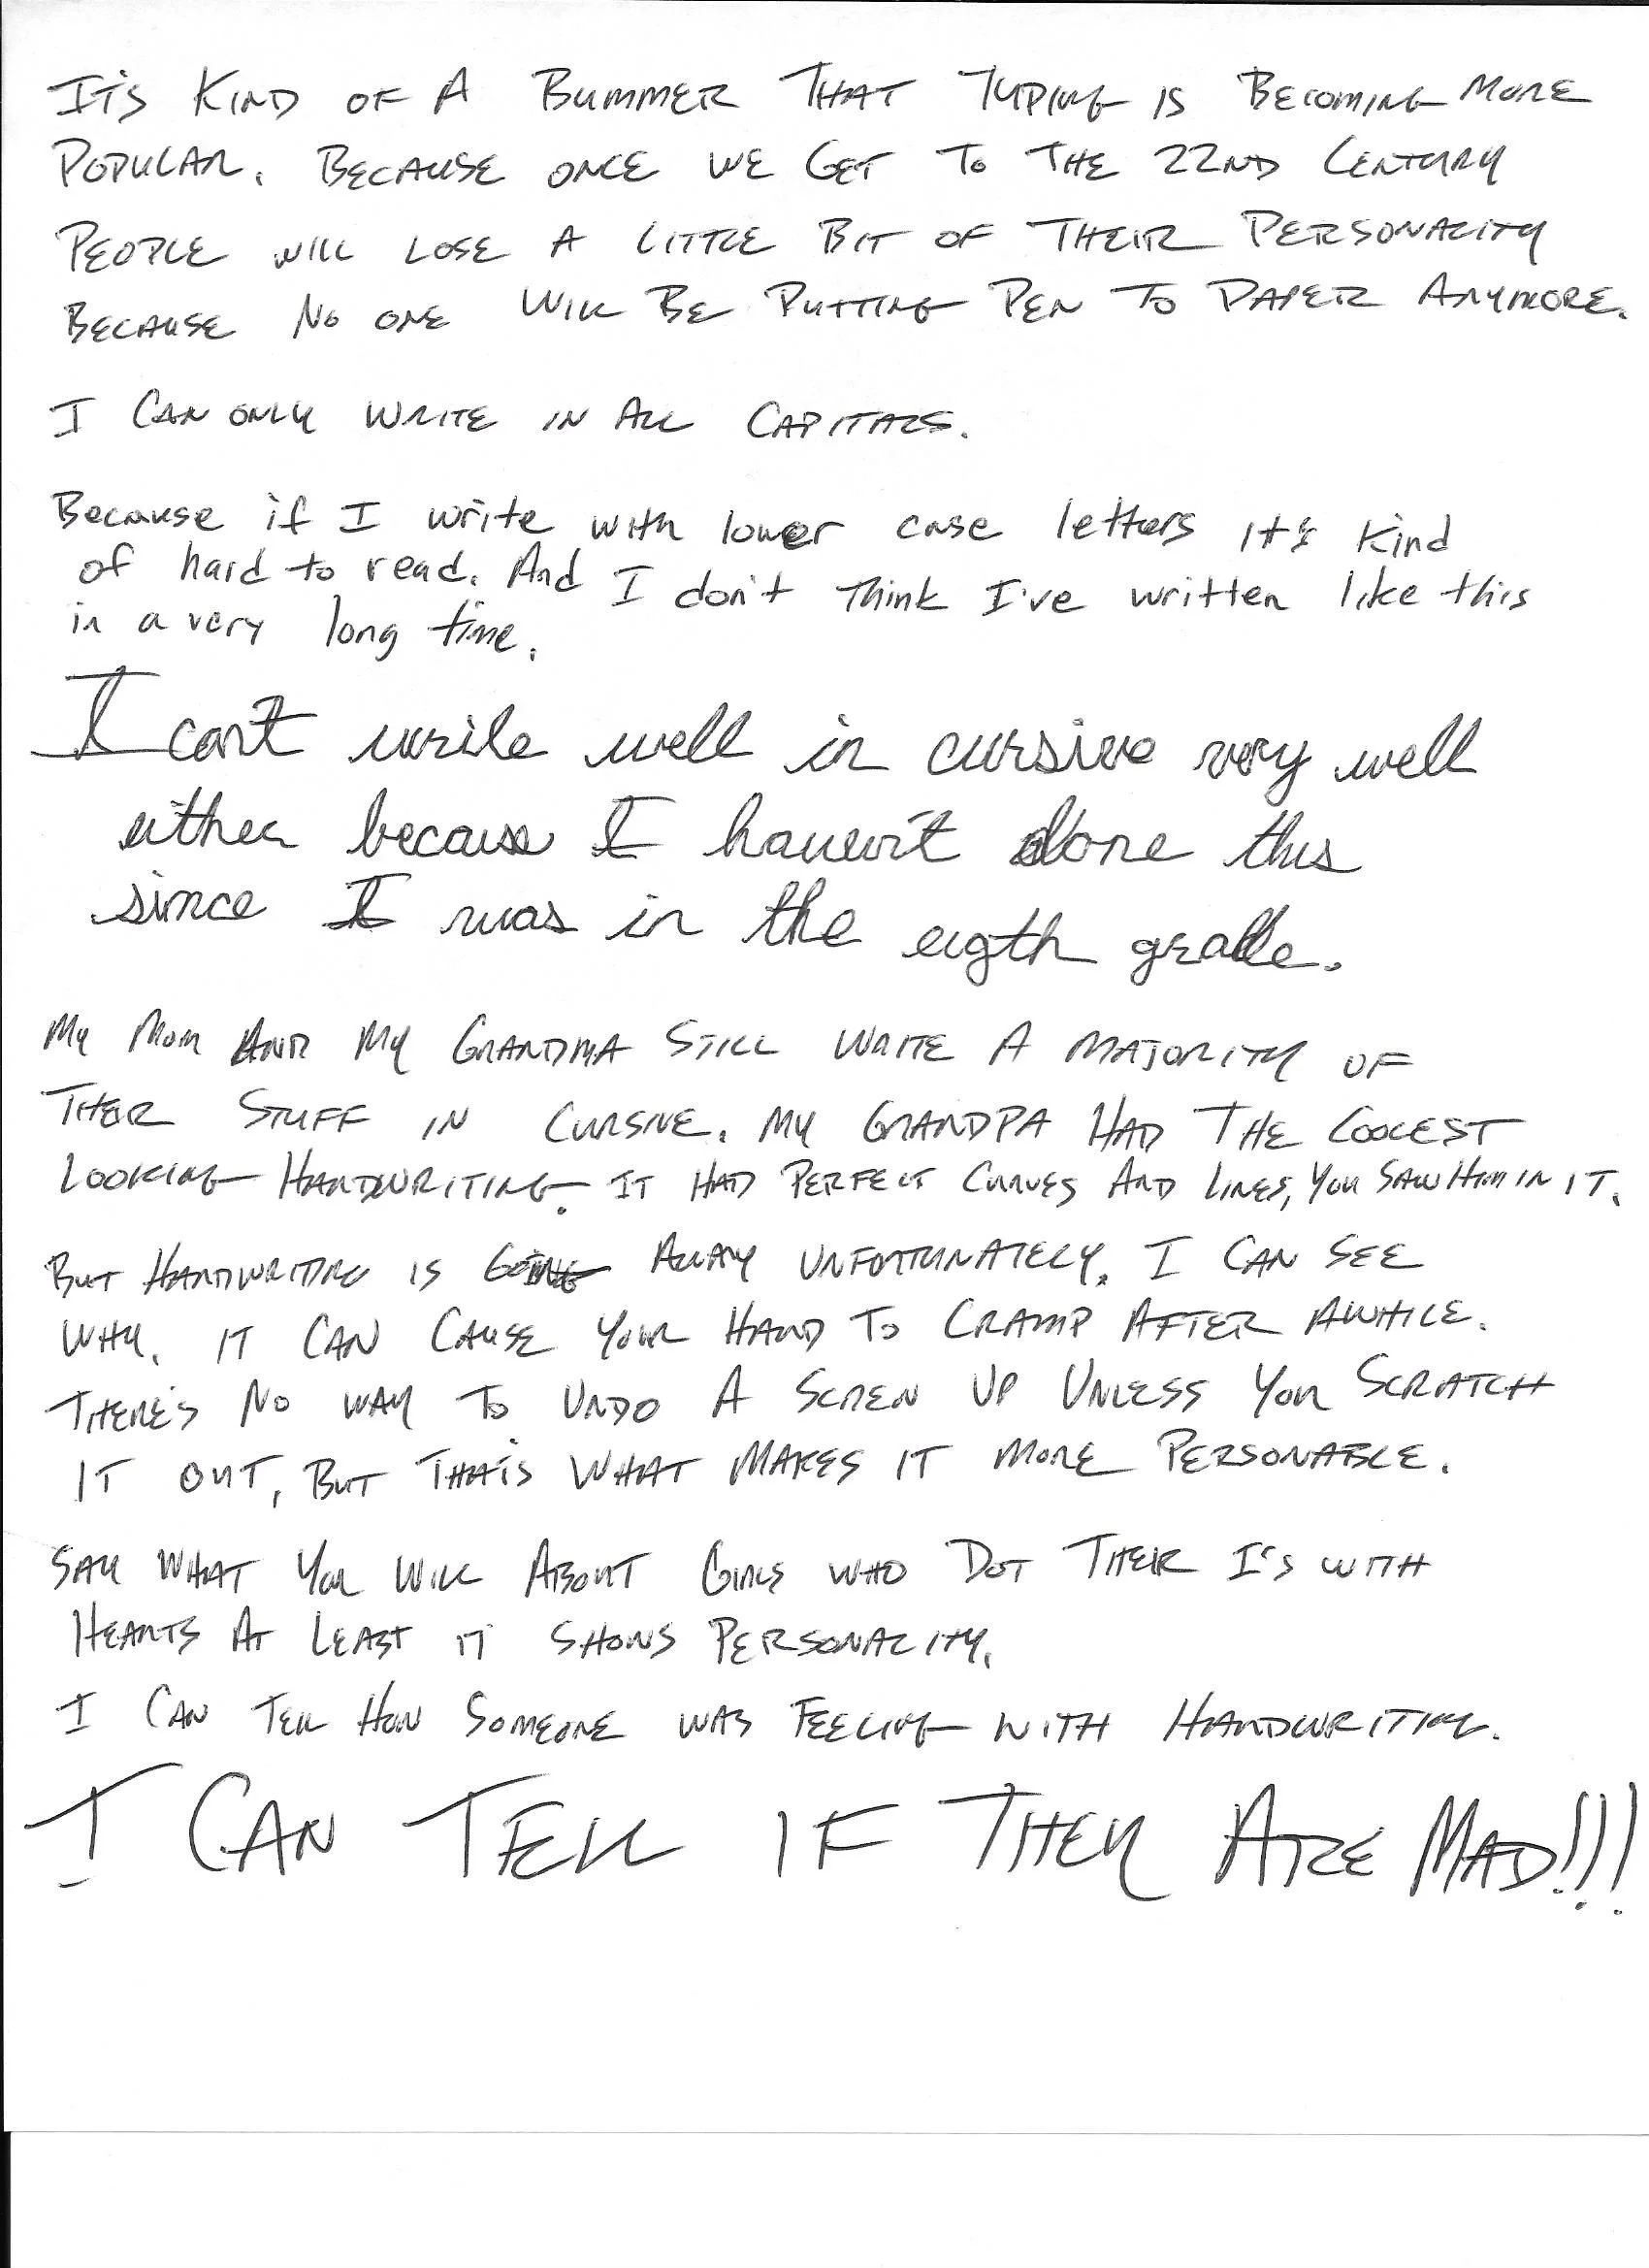 IT'S KIND OF A BUMMER THAT TYPING IS BECOMING MORE
POPULAR. BECAUSE ONCE WE GET TO THE 22ND CENTURY
PEOPLE WILL LOSE A LITTLE BIT OF THEIR PERSONALITY
BECAUSE NO ONE WILL BE PUTTING PEN TO PAPER ANYMORE.
I CAN ONLY WRITE IN ALL CAPITALS.
Because if I write with lower case letters it's kind
of hard to read. And I don't think I've written like this
in a very long time.
I can't write well in cursive very well
either because I haven't done this
since I was in the eigth grade.
MY MOM AND MY GRANDMA STILL WRITE A MAJORITY OF
THER STUFF IN CURSIVE. MY GRANDPA HAD THE COOLEST
LOOKING HANDWRITING. IT HAD PERFECT CURVES AND LINES, YOU SAW HIM IN IT.
BUT HANDWRITING IS GOING AWAY UNFORTUNATELY. I CAN SEE
WHY. IT CAN CAUSE YOUR HAND TO CRAMP AFTER AWHILE.
THERE'S NO WAY TO UNDO A SCREW UP UNLESS YOU SCRATCH
IT OUT, BUT THAT'S WHAT MAKES IT MORE PERSONABLE.
SAY WHAT YOU WILL ABOUT GIRLS WHO DOT THEIR I'S WITH
HEARTS AT LEAST IT SHOWS PERSONALITY.
I CAN TELL HOW SOMEONE WAS FEELING WITH HANDWRITING.
I CAN TELL IF THEY ARE MAD!!!